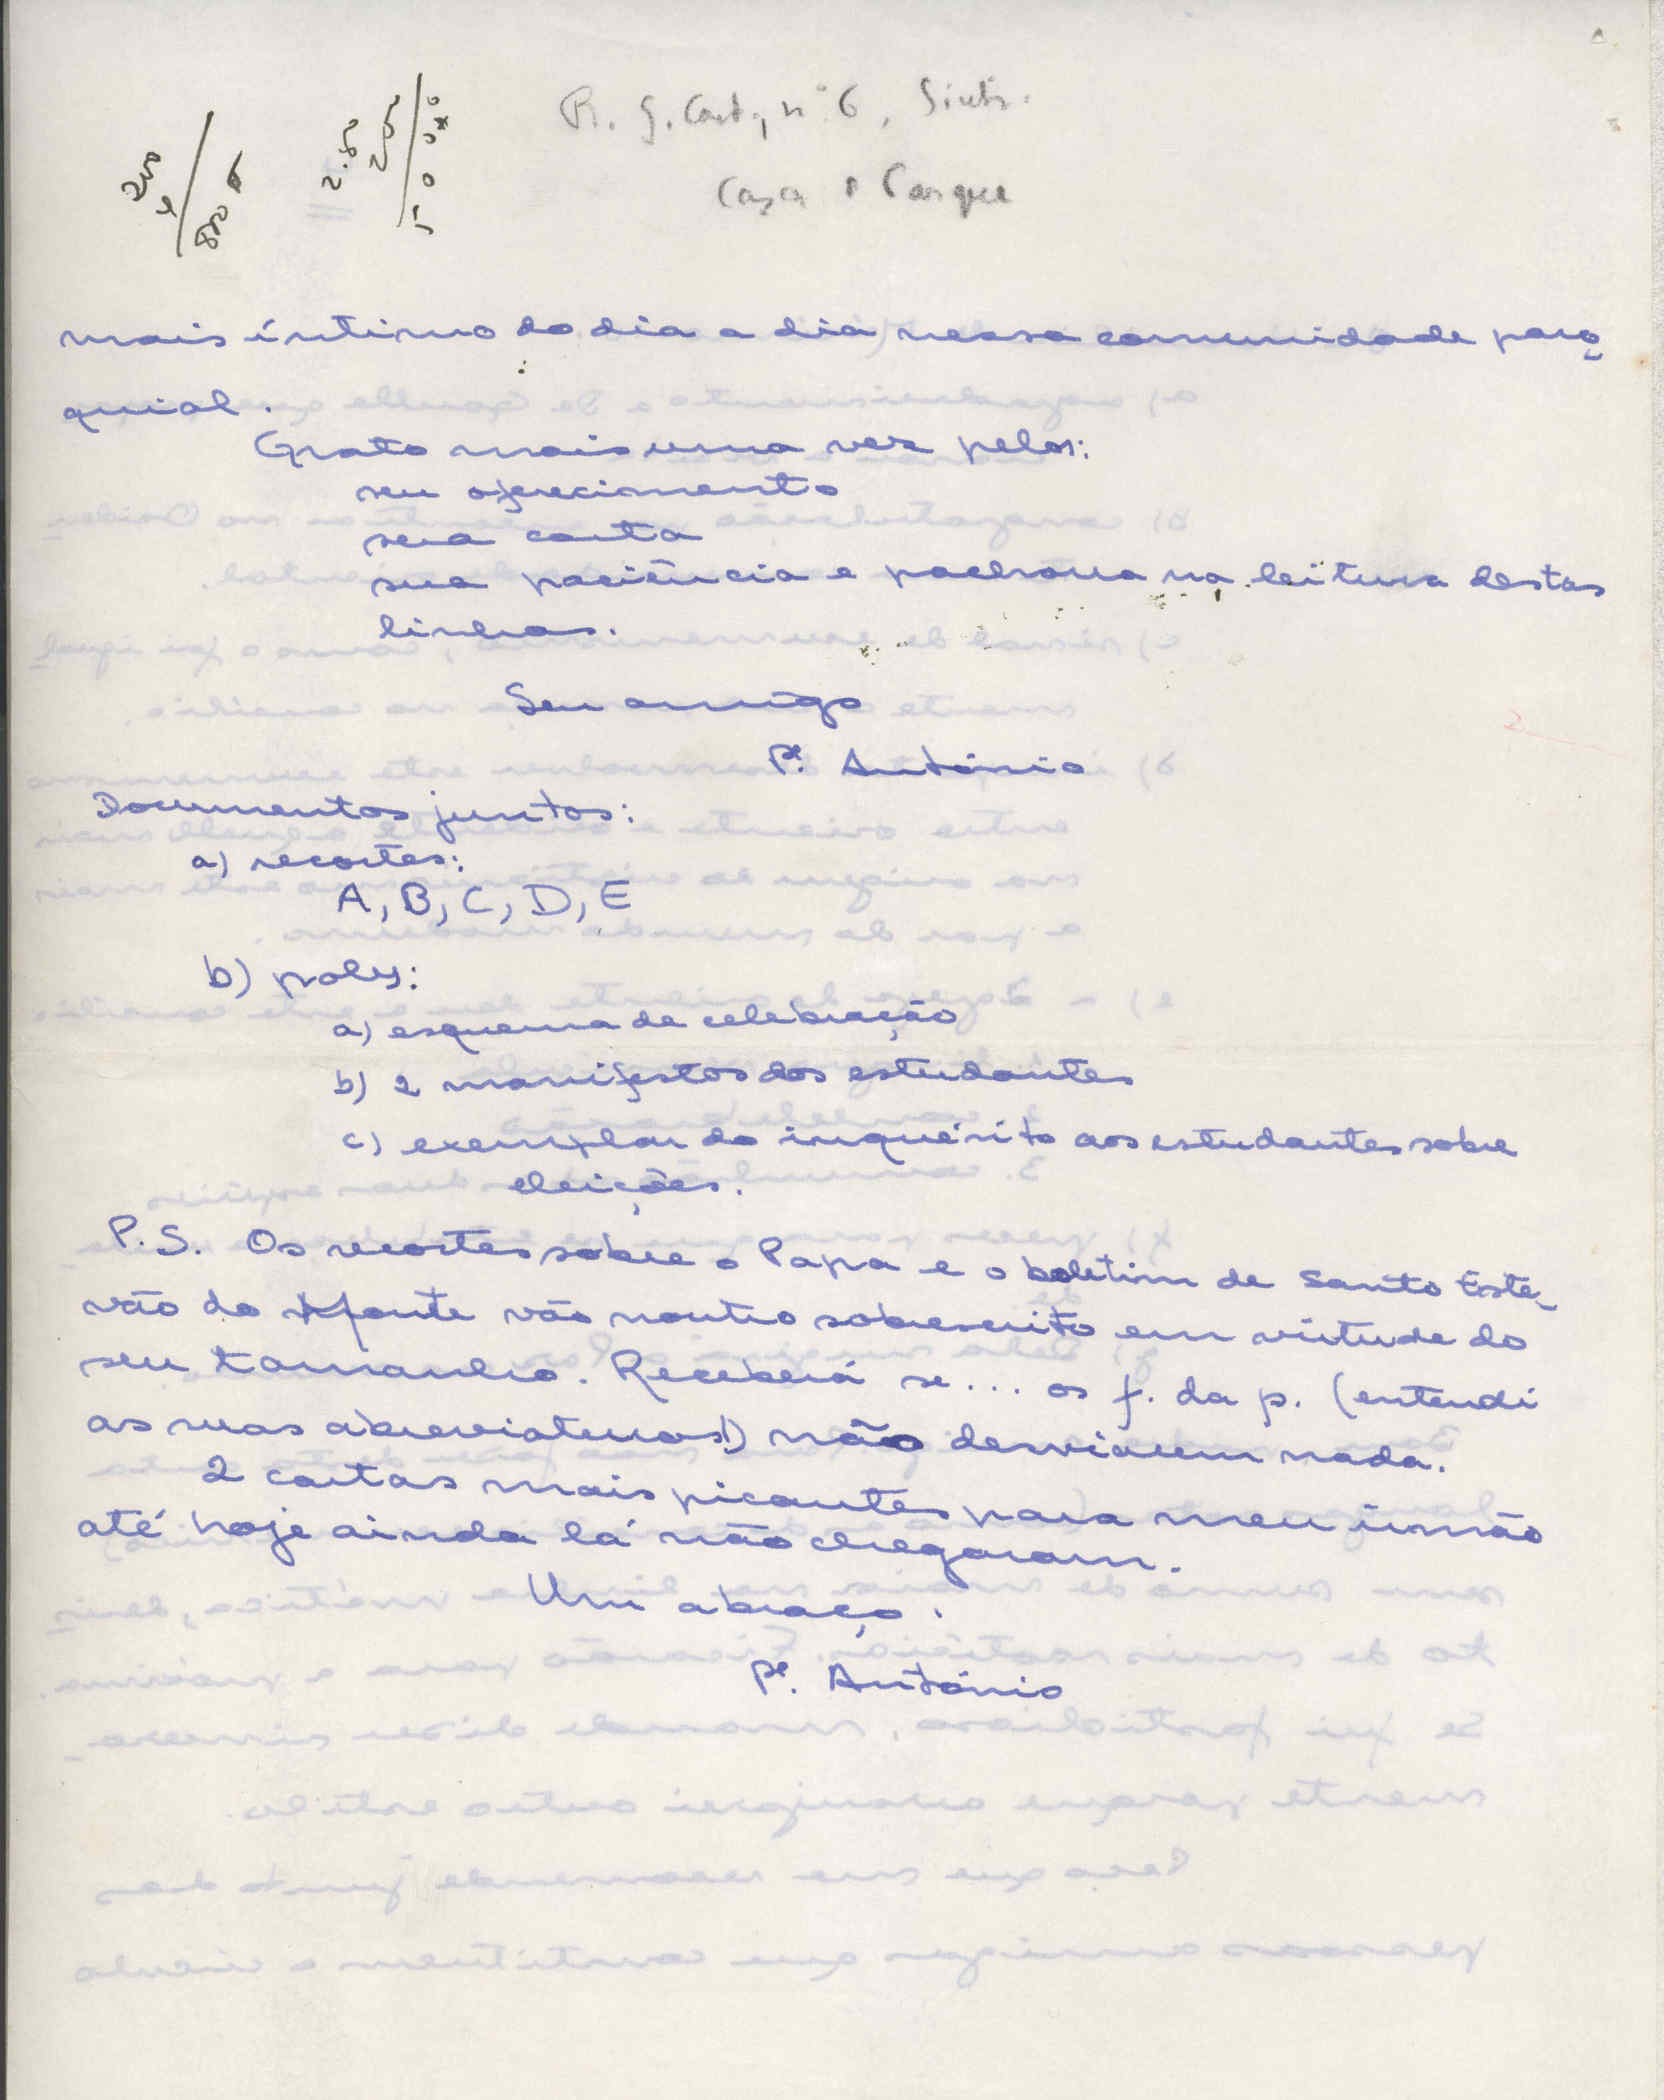 R. G. n.º 6,
Casa Parque
mais íntimo do dia a dia nessa comunidade paro-
quial.
Grato mais uma vez pelos:
seu oferecimento
sua carta
sua paciência e pachorra na leitura destas
linhas.
Seu amigo
Pe. António
Documentos juntos:
a) recortes:
A, B, C, D, E
b) polys:
a) esquema de celebração
b) 2 manifestos dos estudantes
c) exemplar do inquérito aos estudantes sobre
eleições.
P.S. Os recortes sobre o Papa e o boletim de Santo Este-
vão do fonte vão noutro sobrescrito em virtude do
seu tamanho. Receberá se... os f. da p. (entendi
as suas abreviaturas!) não desviarem nada.
2 cartas mais picantes para meu irmão
até hoje ainda lá não chegaram.
Um abraço.
Pe. António